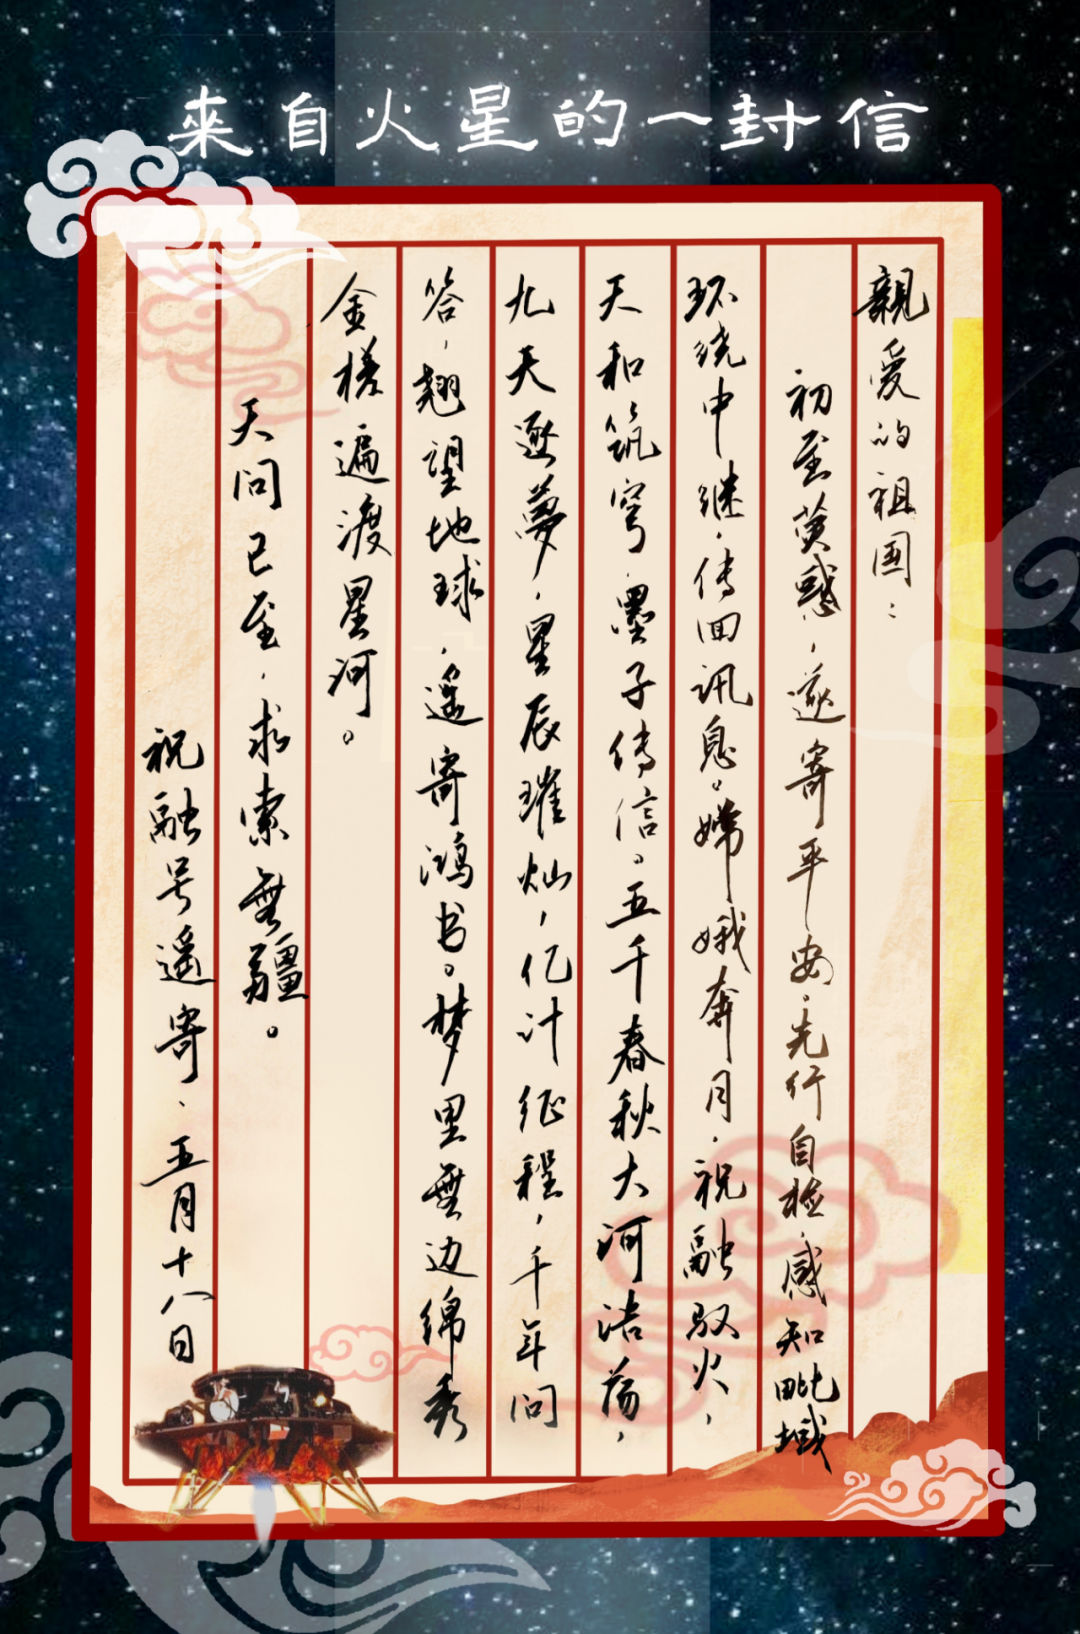 來自火星的一封信
親爱的祖国：
初至荧惑，遂寄平安。先行自检，感知毗域
环绕中继，传回讯息。嫦娥奔月，祝融驭火，
天和筑穹，墨子传信。五千春秋大河浩荡，
九天逐夢，星辰璀灿，亿计征程，千年问
答，翘望地球，遥寄鸿书。梦里無边绵秀
金槎遍渡星河。
天问已至，求索無疆。
祝融号遥寄、五月十八日